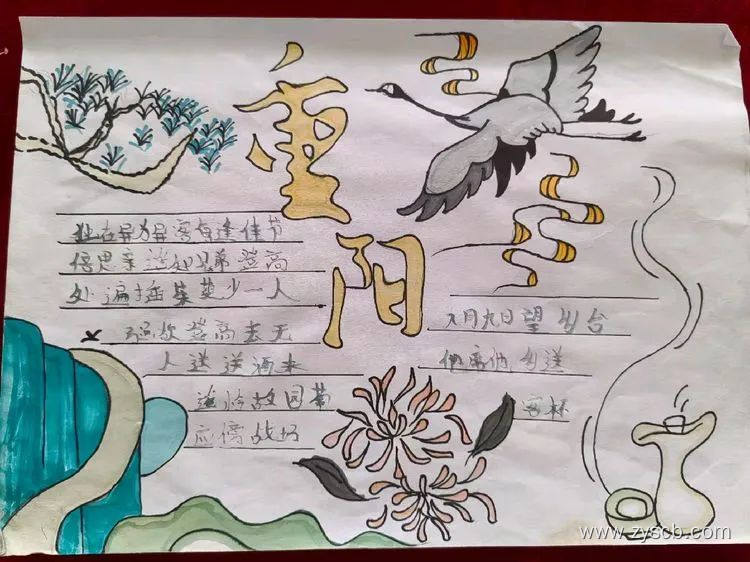 重阳
独在异乡异客每逢佳节
倍思亲遥知兄弟登高
处遍插茱萸少一人
强欲登高去无
人送送酒来
遥怜故园菊
应傍战场
九月九日望乡台
他席他乡送
客杯
www.zyscb.com